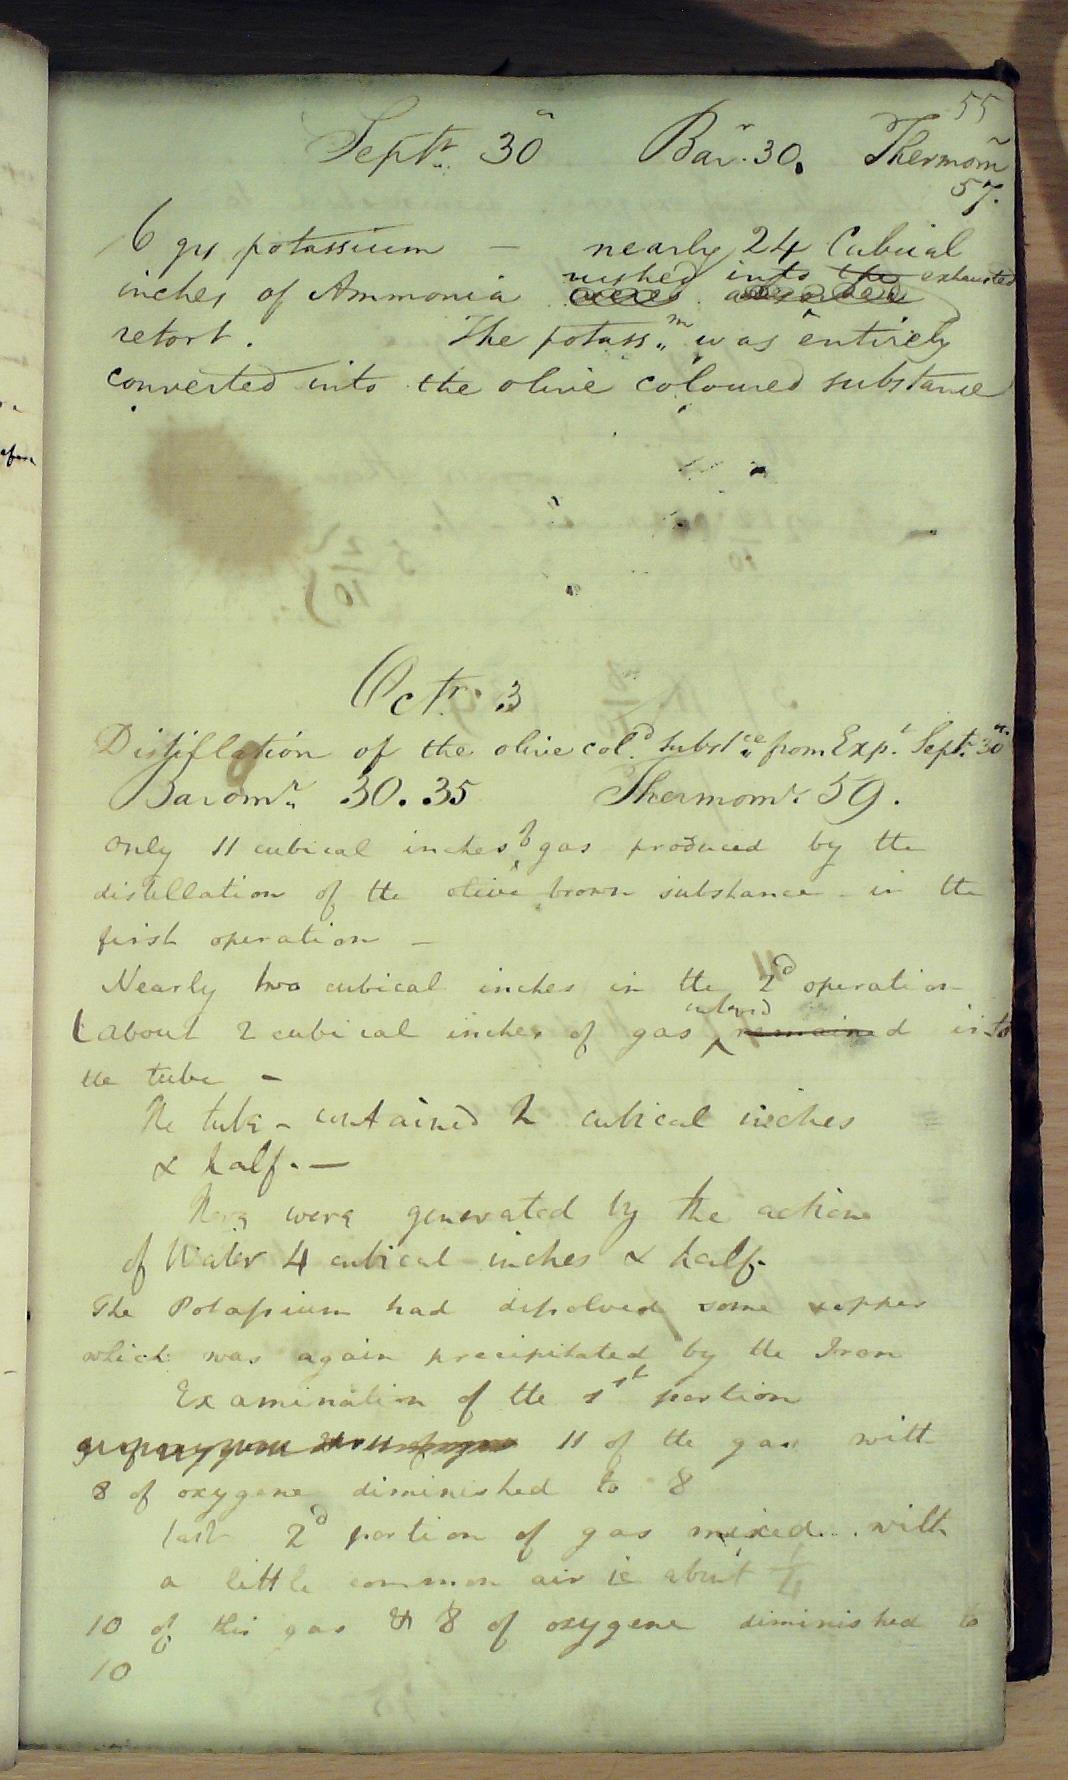 55
Septr. 30 Bar. 30. Thermom
57.
6 grs potassium — nearly 24 Cubical
rushed into the exhausted
inches of Ammonia
retort. The potassm was entirely
converted into the olive coloured substance
Octr. 3
Distillation of the olive cold substce from Expt Septr. 30
Baromr. 30.35 Thermomr. 59.
only 11 cubical inches of gas produced by the
distillation of the olive brown substance in the
first operation —
Nearly two cubical inches in the 2d operation
entered
(about 2 cubical inches of gas remained into
the tube —
The tube – contained 2 cubical inches
& half. —
There were generated by the action
of Water 4 cubical inches & half.
The Potassium had dissolved some copper
which was again precipitated by the Iron
Examination of the 1st portion
11 of the gas with
8 of oxygene diminished to 8
last 2d portion of gas mixed with
a little common air ie about 1/4
10 of this gas & 8 of oxygene diminished to
10